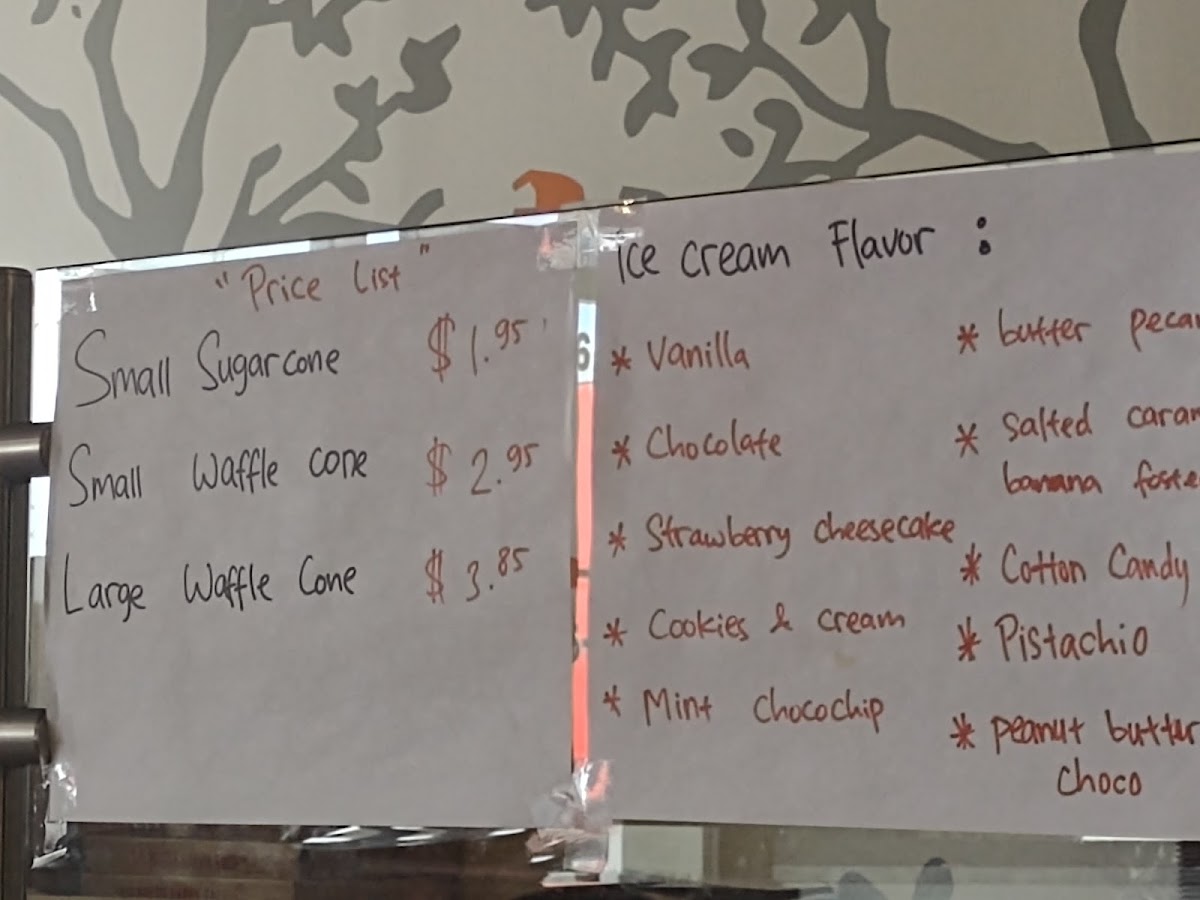 "Price List"
Small Sugarcone $1.95
Small Waffle cone $2.95
Large Waffle Cone $3.85
6
Ice cream Flavor :
* Vanilla
* Chocolate
* Strawberry cheesecake
* Cookies & cream
* Mint Chocochip
* butter pecan
* salted caram
banana foste
* Cotton Candy
* Pistachio
* peanut butter
choco